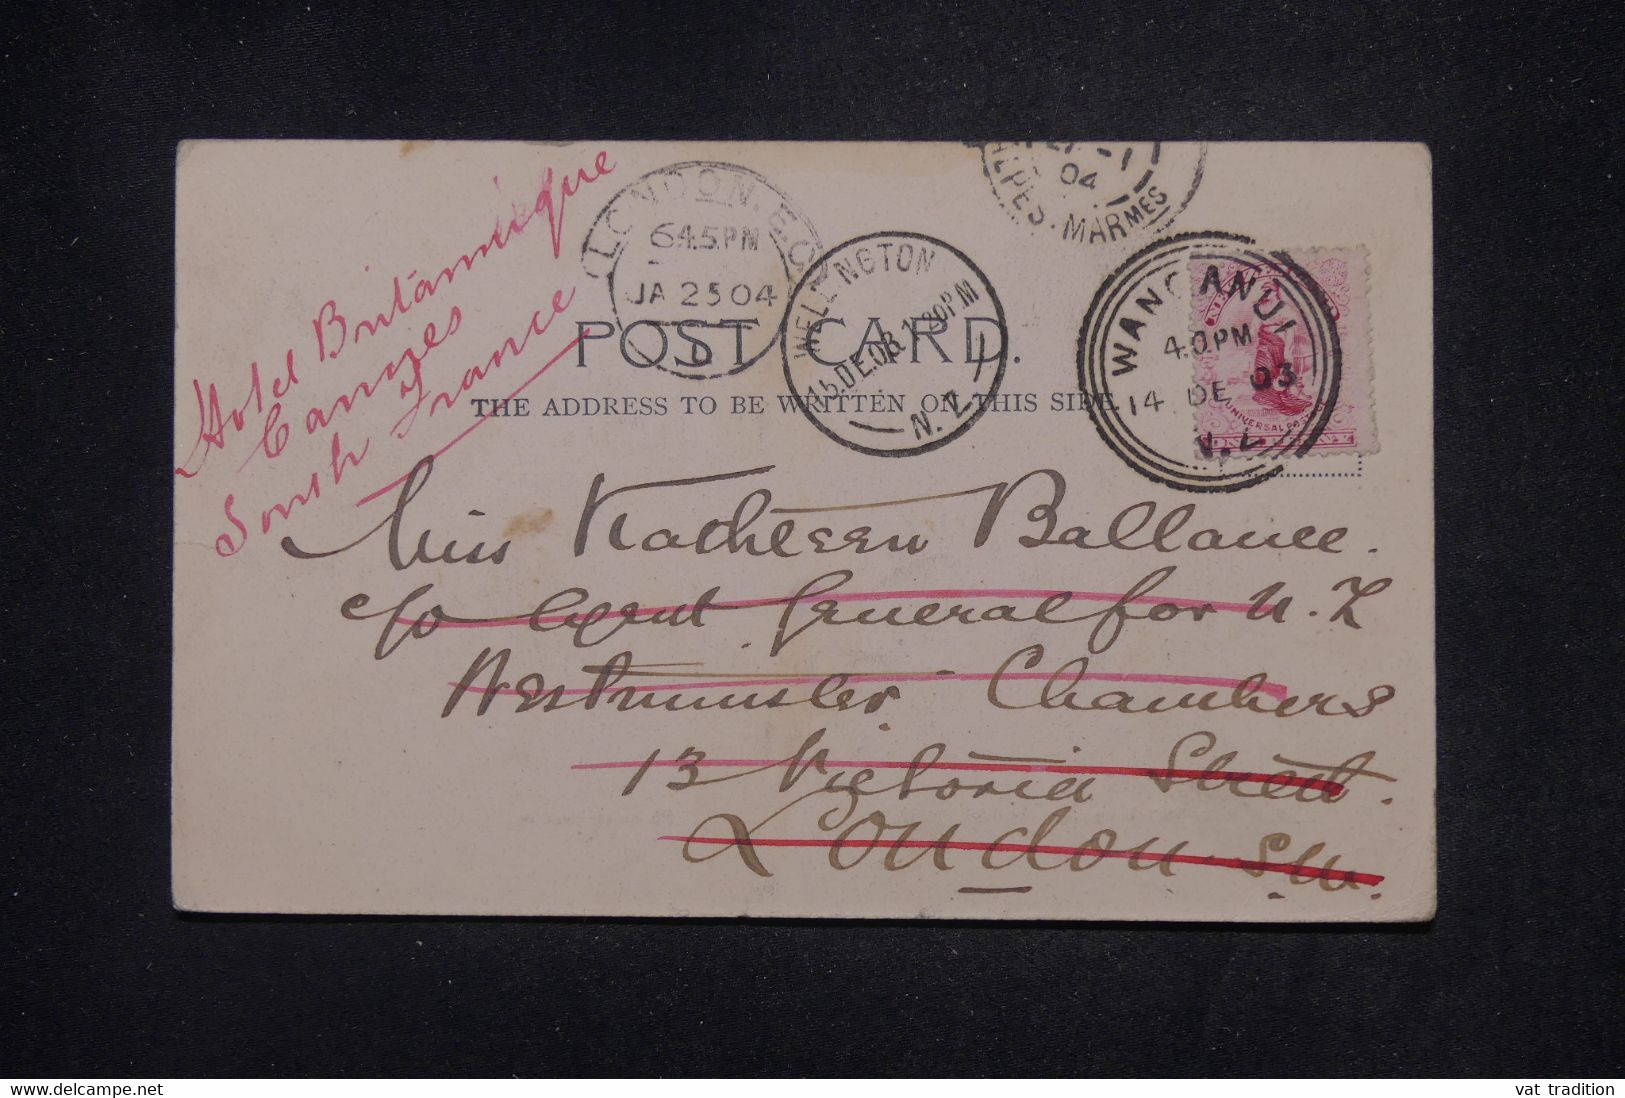 ALPES-MARMES
-1
04
LONDON. E.C
645PM
JA 25 04
WELLINGTON
15.DE.03. 1 30PM
N.Z.
WANGANUI
4.0.PM
14 DE 03
N.Z.
UNIVERSAL PO
POST CARD.
THE ADDRESS TO BE WRITTEN ON THIS SIDE.
Hotel Britannique
Cannes
South France
Miss Kathleen Ballance.
c/o Agent General for N. Z
Westminster Chambers
13 Victoria Street.
London S.W.
Delcampe.net
vat_tradition